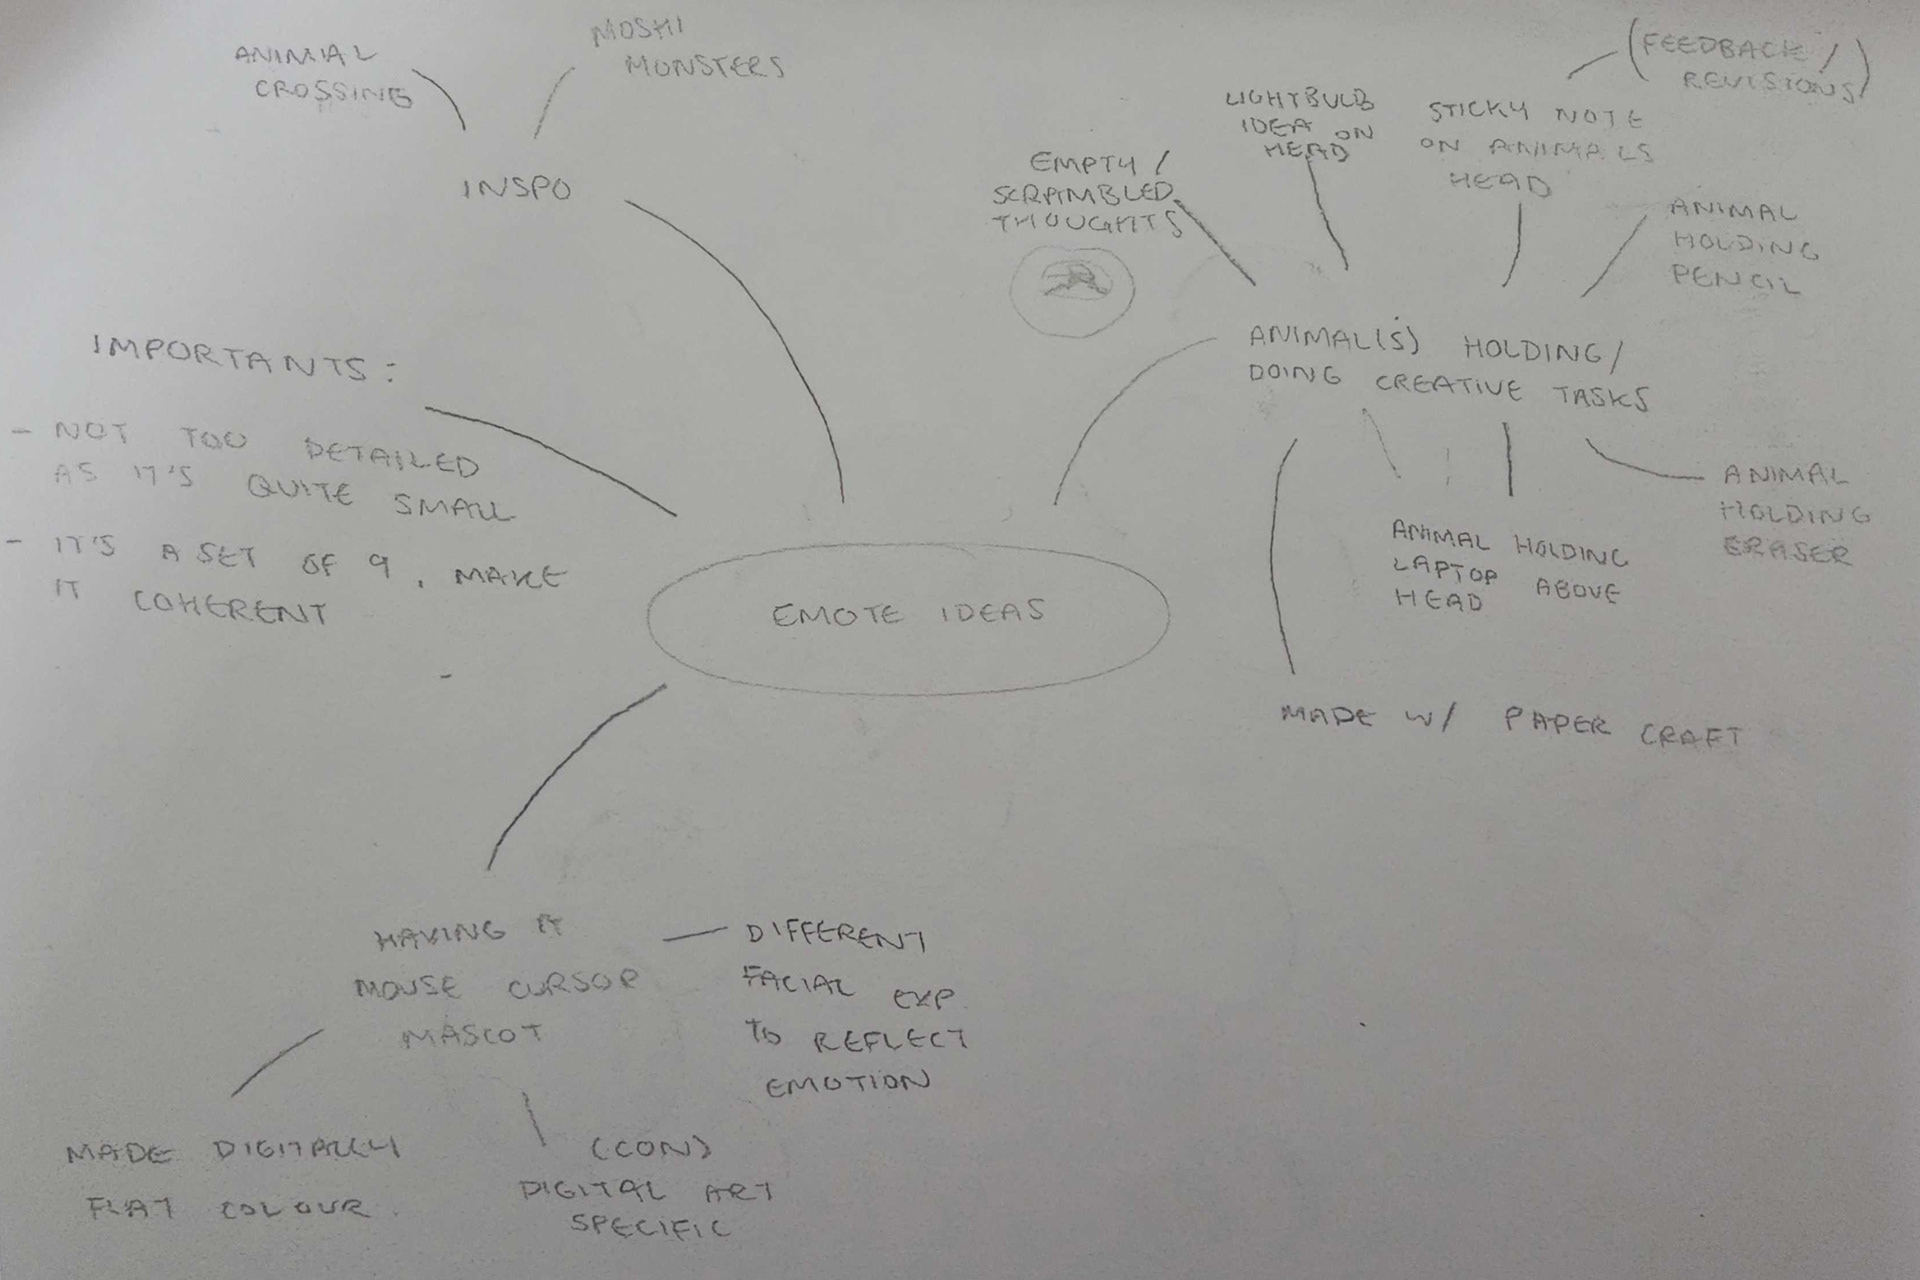 ANIMAL
CROSSING
MOSHI
MONSTERS
INSPO
IMPORTANTS:
- NOT TOO DETAILED
AS IT'S QUITE SMALL
- IT'S A SET OF 9, MAKE
IT COHERENT
EMOTE IDEAS
EMPTY /
SCRAMBLED
THOUGHTS
LIGHTBULB
IDEA ON
HEAD
STICKY NOTE
ON ANIMALS
HEAD
(FEEDBACK /
REVISIONS)
ANIMAL
HOLDING
PENCIL
ANIMAL(S) HOLDING/
DOING CREATIVE TASKS
ANIMAL
HOLDING
ERASER
ANIMAL HOLDING
LAPTOP ABOVE
HEAD
MADE W/ PAPER CRAFT
HAVING IT
MOUSE CURSOR
MASCOT
DIFFERENT
FACIAL EXP.
TO REFLECT
EMOTION
MADE DIGITALLY
FLAT COLOUR
(CON)
DIGITAL ART
SPECIFIC